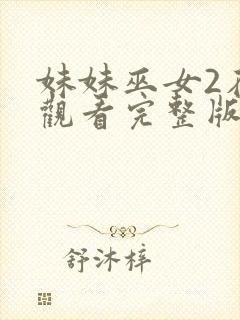 妹妹巫女2
觀看完整版
舒沐梓